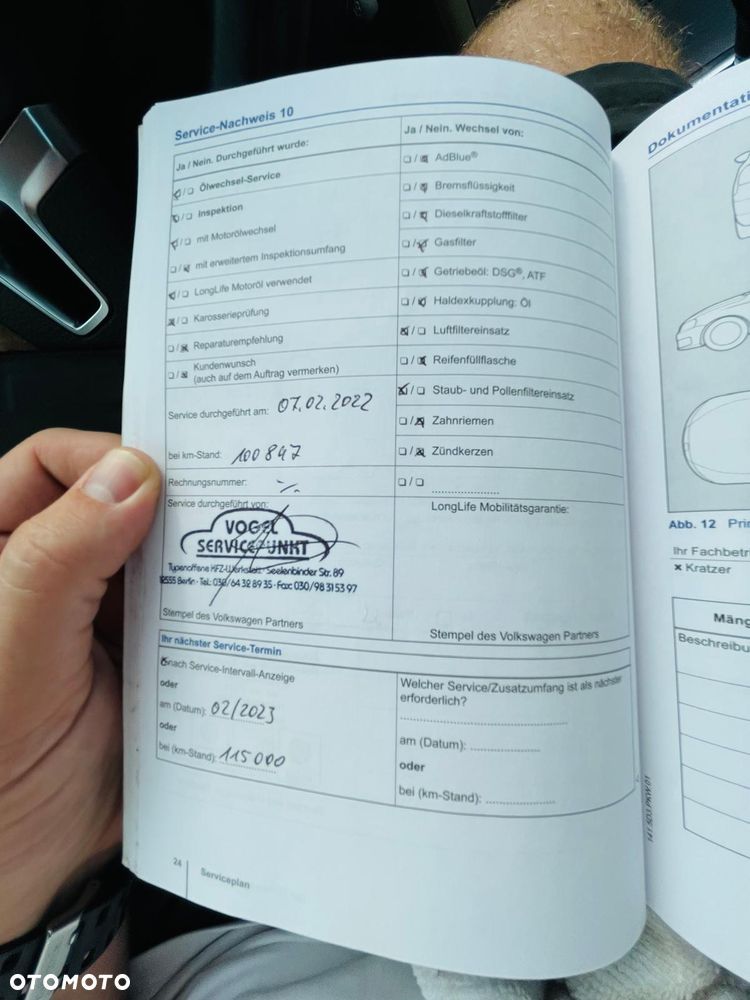 Service-Nachweis 10
Ja / Nein. Durchgeführt wurde:
☑/☐ Ölwechsel-Service
☑/☐ Inspektion
☑/☐ mit Motorölwechsel
☐/☒ mit erweitertem Inspektionsumfang
☑/☐ LongLife Motoröl verwendet
☒/☐ Karosserieprüfung
☐/☒ Reparaturempfehlung
☐/☒ Kundenwunsch
(auch auf dem Auftrag vermerken)
Service durchgeführt am: 07.02.2022
bei km-Stand: 100847
Rechnungsnummer:
Service durchgeführt von:
VOGEL
SERVICEPUNKT
Typenoffene KFZ-Werkstatt · Seelenbinder Str. 89
12555 Berlin · Tel.: 030/64 32 89 35 · Fax: 030/98 31 53 97
Stempel des Volkswagen Partners
Ja / Nein. Wechsel von:
☐/☒ AdBlue®
☐/☒ Bremsflüssigkeit
☐/☒ Dieselkraftstofffilter
☐/☒ Gasfilter
☐/☒ Getriebeöl: DSG®, ATF
☐/☒ Haldexkupplung: Öl
☒/☐ Luftfiltereinsatz
☐/☒ Reifenfüllflasche
☒/☐ Staub- und Pollenfiltereinsatz
☐/☒ Zahnriemen
☐/☒ Zündkerzen
☐/☐ ......................
LongLife Mobilitätsgarantie:
Stempel des Volkswagen Partners
Ihr nächster Service-Termin
☒ nach Service-Intervall-Anzeige
oder
am (Datum): 02/2023
oder
bei (km-Stand): 115000
Welcher Service/Zusatzumfang ist als nächster
erforderlich?
am (Datum): ..................
oder
bei (km-Stand): ..................
24
Serviceplan
141.5D3.PKW.01
Dokumentati
Abb. 12 Prin
Ihr Fachbetri
× Kratzer
Mäng
Beschreibu
OTOMOTO